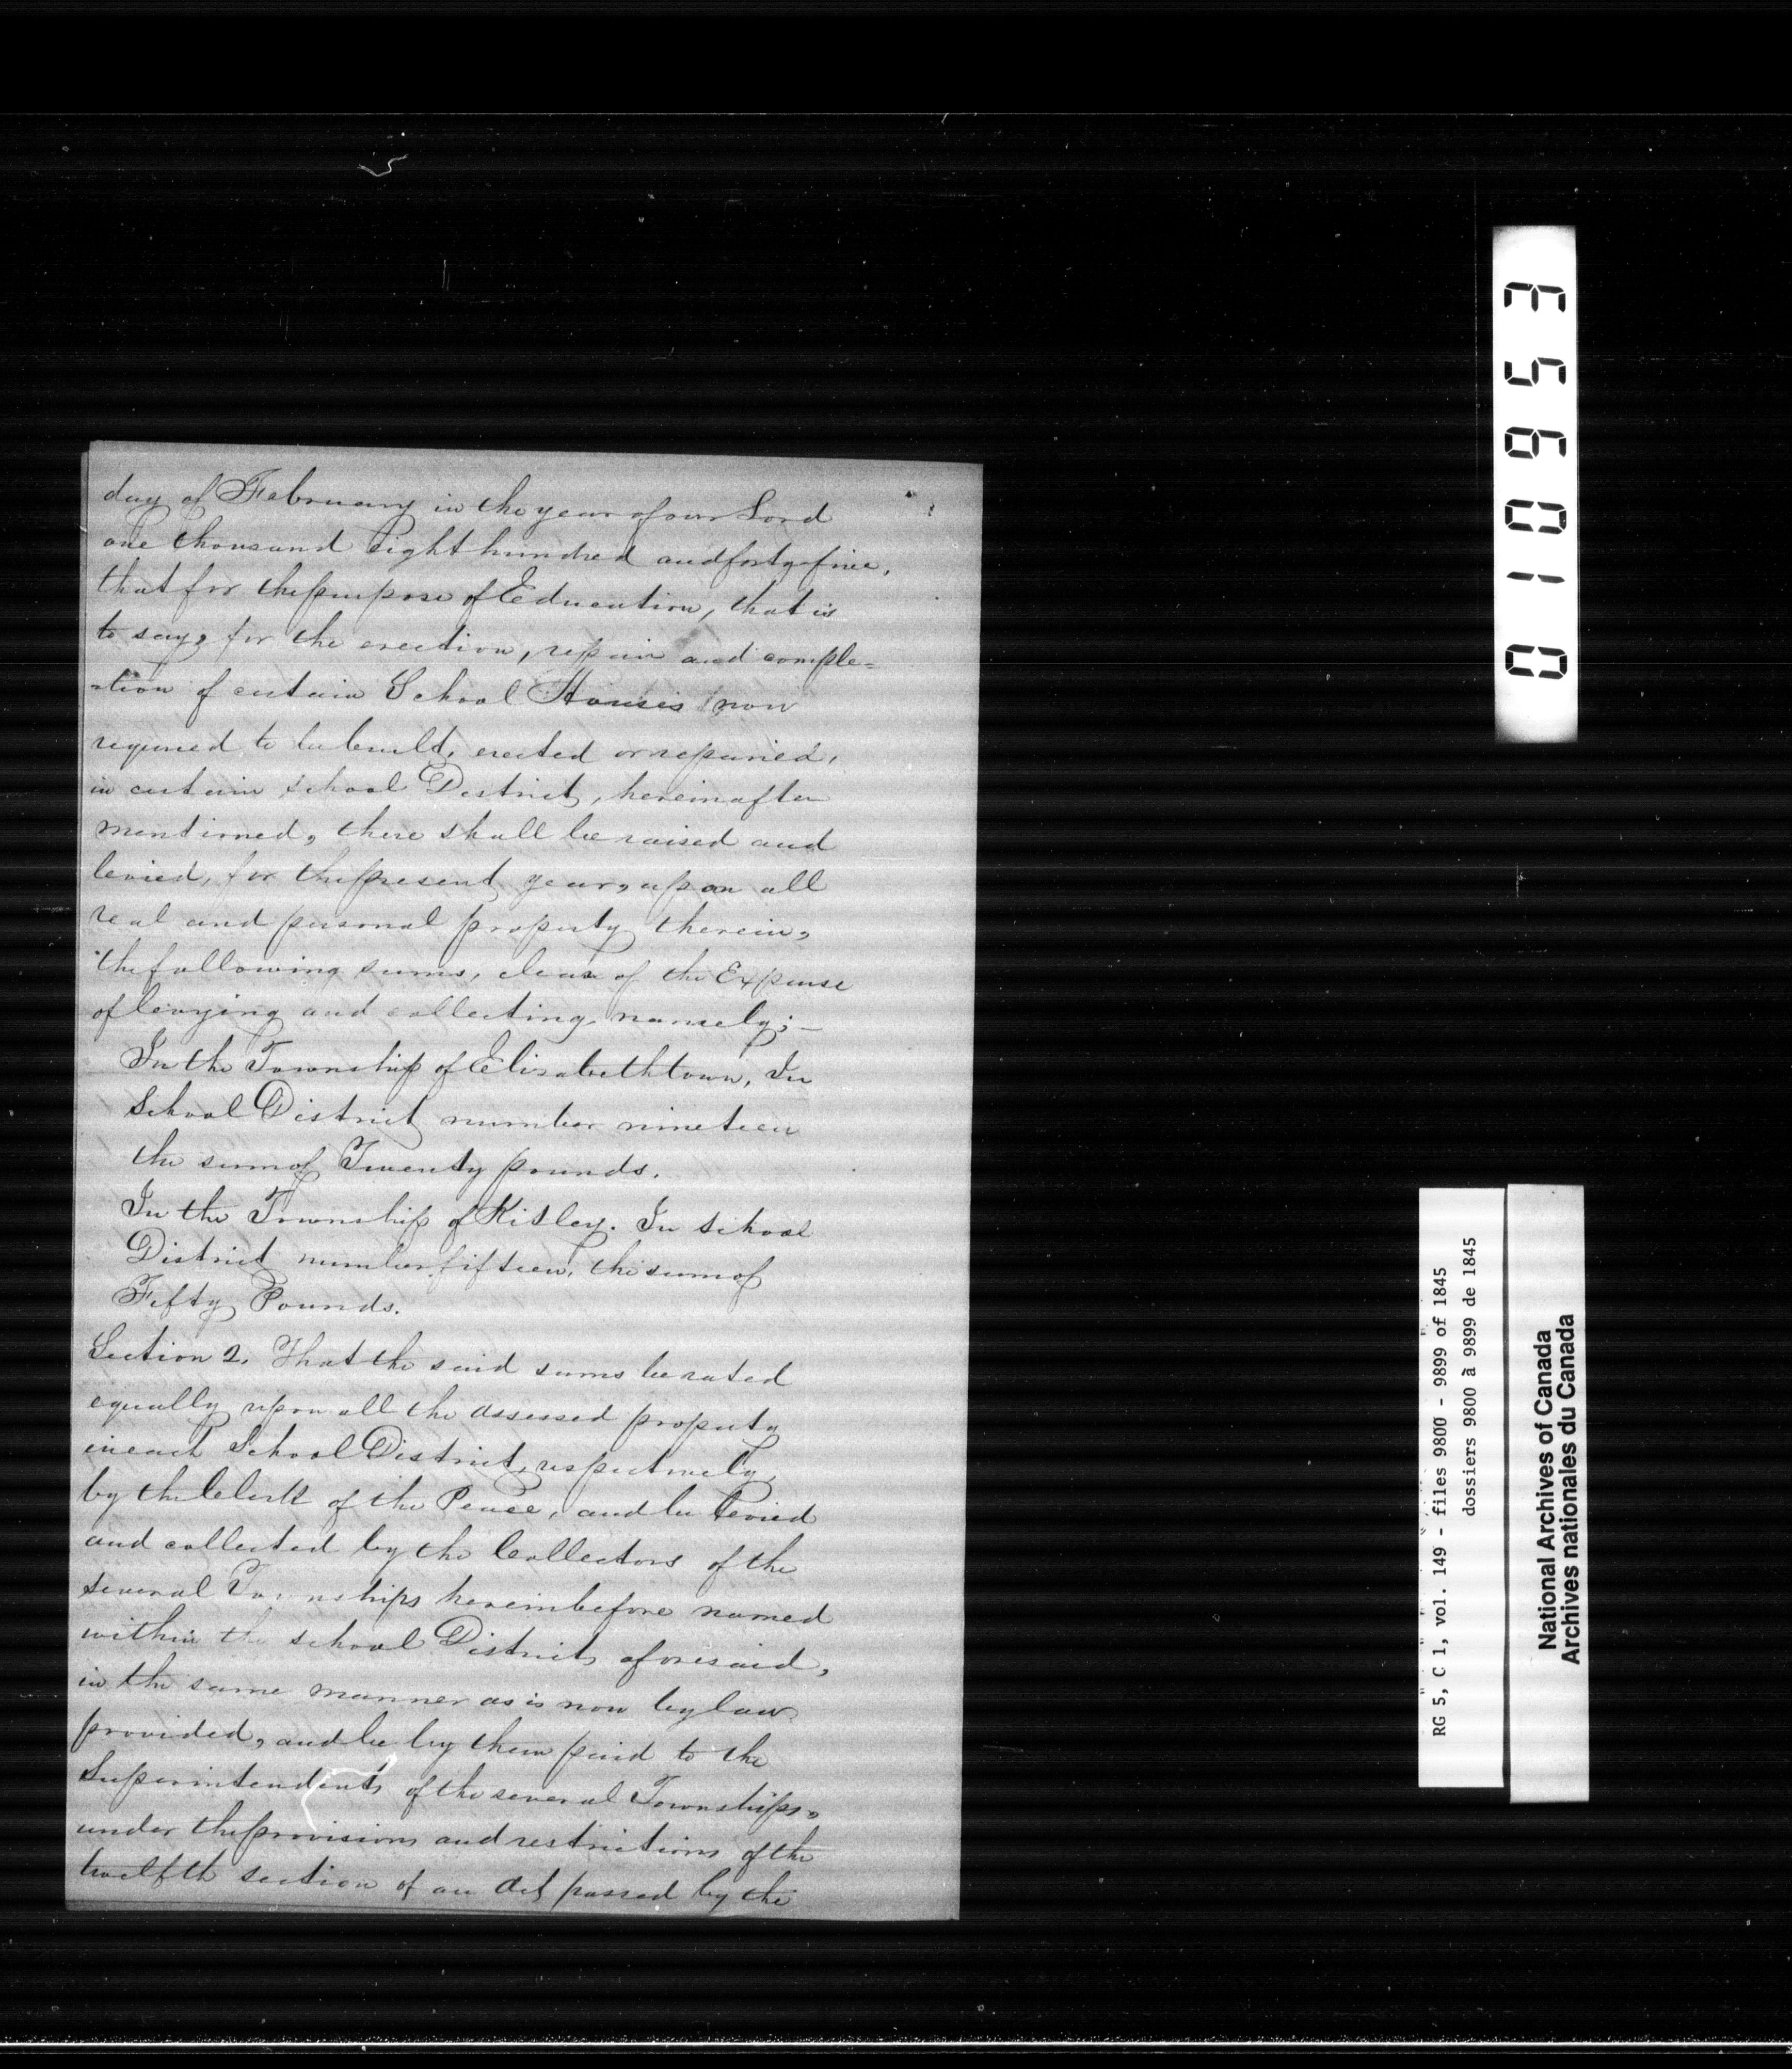 day of February in the year of our Lord
one thousand Eight hundred and forty-five,
that for the purpose of Education, that is
to say, for the erection, repair and comple=
-tion of certain School Houses now
required to be built, erected or repaired,
in certain School District, hereinafter
mentioned, there shall be raised and
levied, for the present year, upon all
real and personal property therein,
the following sums, clear of the Expense
of levying and collecting namely; —
In the Township of Elisabethtown, In
School District number nineteen
the sum of Twenty pounds.
In the Township of Kitley. In School
District number fifteen, the sum of
Fifty Pounds.
Section 2. That the said sums be rated
equally upon all the assessed property
in each School District, respectively,
by the Clerk of the Peace, and be levied
and collected by the Collectors of the
several Townships hereinbefore named
within the School Districts aforesaid,
in the same manner as is now by law
provided, and be by them paid to the
Superintendents of the several Townships,
under the provisions and restrictions of the
twelfth section of an Act passed by the
010953
RG 5, C 1, vol. 149 - files 9800 - 9899 of 1845
dossiers 9800 à 9899 de 1845
National Archives of Canada
Archives nationales du Canada